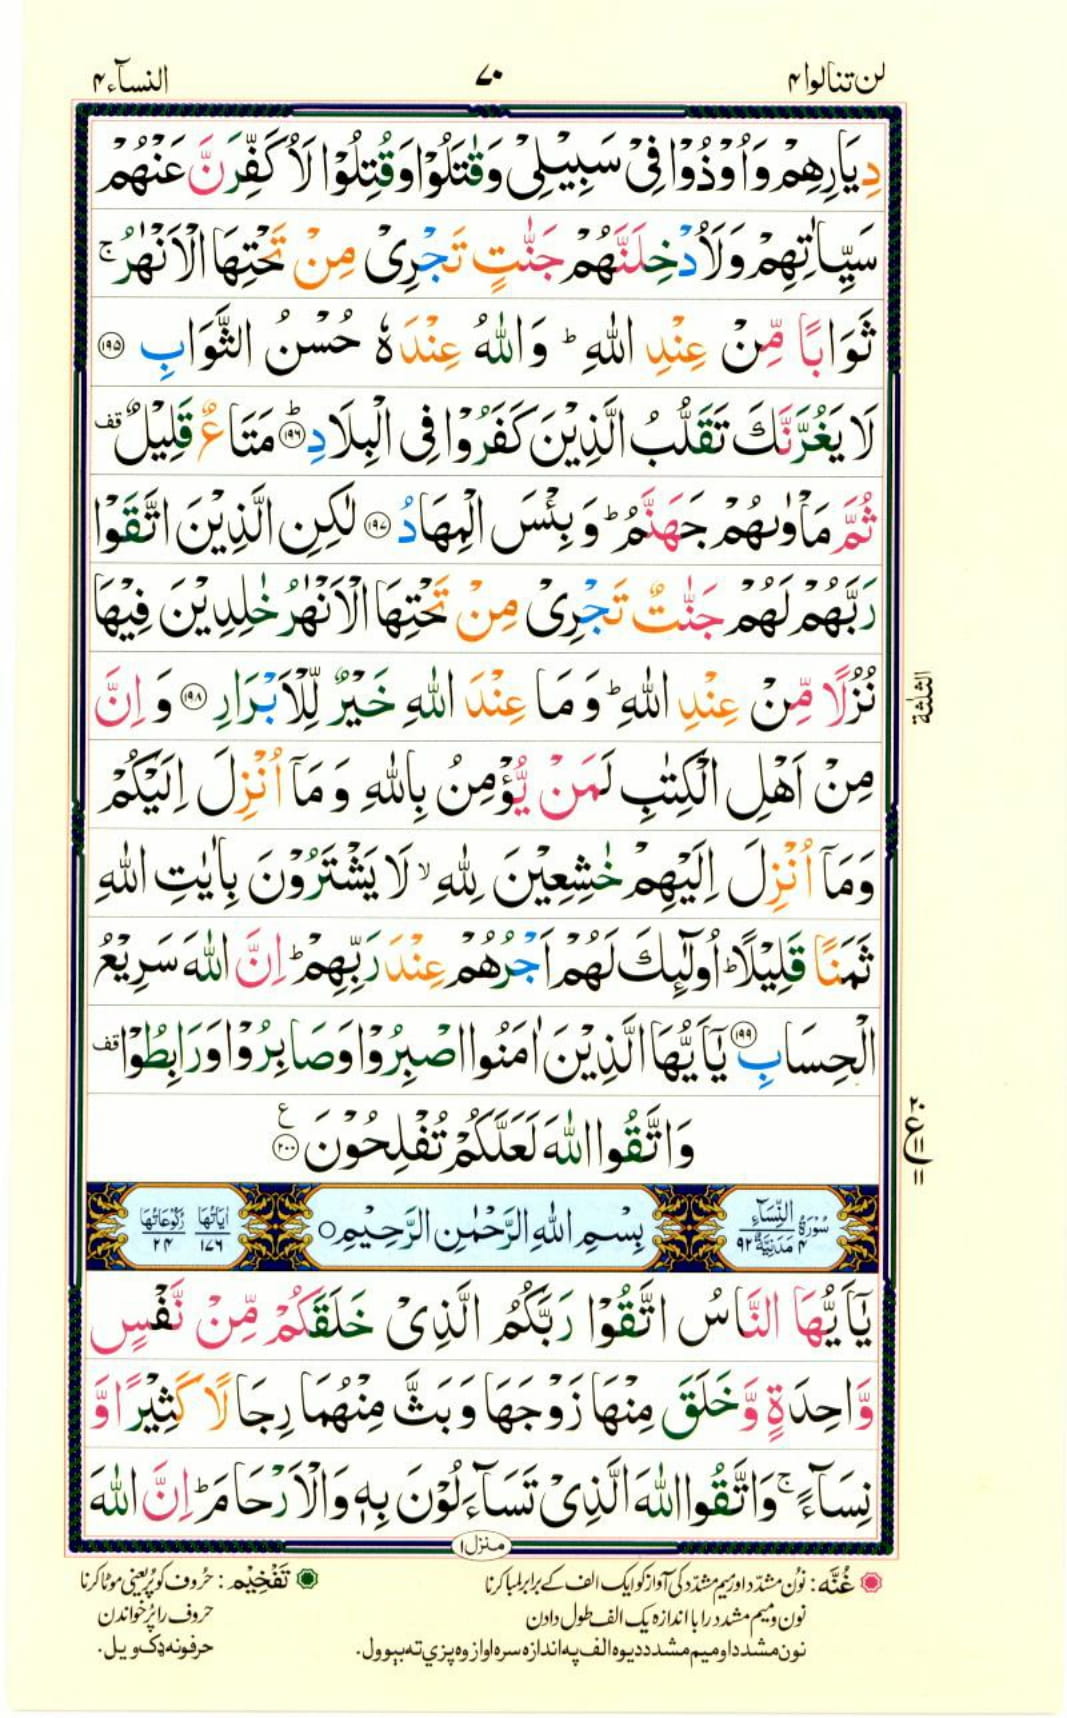 لن تنالوا ۴
۷۰
النسآء ۴
دِيَارِهِمْ وَاُوْذُوْا فِيْ سَبِيْلِيْ وَقٰتَلُوْا وَقُتِلُوْا لَاُكَفِّرَنَّ عَنْهُمْ
سَيِّاٰتِهِمْ وَلَاُدْخِلَنَّهُمْ جَنّٰتٍ تَجْرِيْ مِنْ تَحْتِهَا الْاَنْهٰرُ ۚ
ثَوَابًا مِّنْ عِنْدِ اللهِ ؕ وَاللهُ عِنْدَهٗ حُسْنُ الثَّوَابِ ۱۹۵
لَا يَغُرَّنَّكَ تَقَلُّبُ الَّذِيْنَ كَفَرُوْا فِي الْبِلَادِ ؕ ۱۹۶ مَتَاعٌ قَلِيْلٌ قف
ثُمَّ مَاْوٰىهُمْ جَهَنَّمُ ؕ وَبِئْسَ الْمِهَادُ ۱۹۷ لٰكِنِ الَّذِيْنَ اتَّقَوْا
رَبَّهُمْ لَهُمْ جَنّٰتٌ تَجْرِيْ مِنْ تَحْتِهَا الْاَنْهٰرُ خٰلِدِيْنَ فِيْهَا
نُزُلًا مِّنْ عِنْدِ اللهِ ؕ وَمَا عِنْدَ اللهِ خَيْرٌ لِّلْاَبْرَارِ ۱۹۸ وَاِنَّ
الثلثة
مِنْ اَهْلِ الْكِتٰبِ لَمَنْ يُّؤْمِنُ بِاللهِ وَمَآ اُنْزِلَ اِلَيْكُمْ
وَمَآ اُنْزِلَ اِلَيْهِمْ خٰشِعِيْنَ لِلّٰهِ ۙ لَا يَشْتَرُوْنَ بِاٰيٰتِ اللهِ
ثَمَنًا قَلِيْلًا ؕ اُولٰٓئِكَ لَهُمْ اَجْرُهُمْ عِنْدَ رَبِّهِمْ ؕ اِنَّ اللهَ سَرِيْعُ
الْحِسَابِ ۱۹۹ يٰٓاَيُّهَا الَّذِيْنَ اٰمَنُوا اصْبِرُوْا وَصَابِرُوْا وَرَابِطُوْا قف
وَاتَّقُوا اللهَ لَعَلَّكُمْ تُفْلِحُوْنَ ۲۰۰ ع
۲۰
ع ۱۱
۱۱
سُوْرَةُ النِّسَآءِ ۴ مَدَنِيَّةٌ ۹۲
بِسْمِ اللهِ الرَّحْمٰنِ الرَّحِيْمِ
اٰيَاتُهَا ۱۷۶ رُكُوْعَاتُهَا ۲۴
يٰٓاَيُّهَا النَّاسُ اتَّقُوْا رَبَّكُمُ الَّذِيْ خَلَقَكُمْ مِّنْ نَّفْسٍ
وَّاحِدَةٍ وَّخَلَقَ مِنْهَا زَوْجَهَا وَبَثَّ مِنْهُمَا رِجَالًا كَثِيْرًا وَّ
نِسَآءً ۚ وَاتَّقُوا اللهَ الَّذِيْ تَسَآءَلُوْنَ بِهٖ وَالْاَرْحَامَ ؕ اِنَّ اللهَ
منزل ۱
غُنَّه: نون مشدّد اور میم مشدّد کی آواز کو ایک الف کے برابر لمبا کرنا
نون و میم مشدد را با اندازہ یک الف طول دادن
نون مشدد او میم مشدد د یوہ الف په اندازه سره اواز وه پزې ته بېوول.
تَفْخِیْم: حُروف کو پُر یعنی موٹا کرنا
حروف را پُر خواندن
حرفونه ډک ویل.